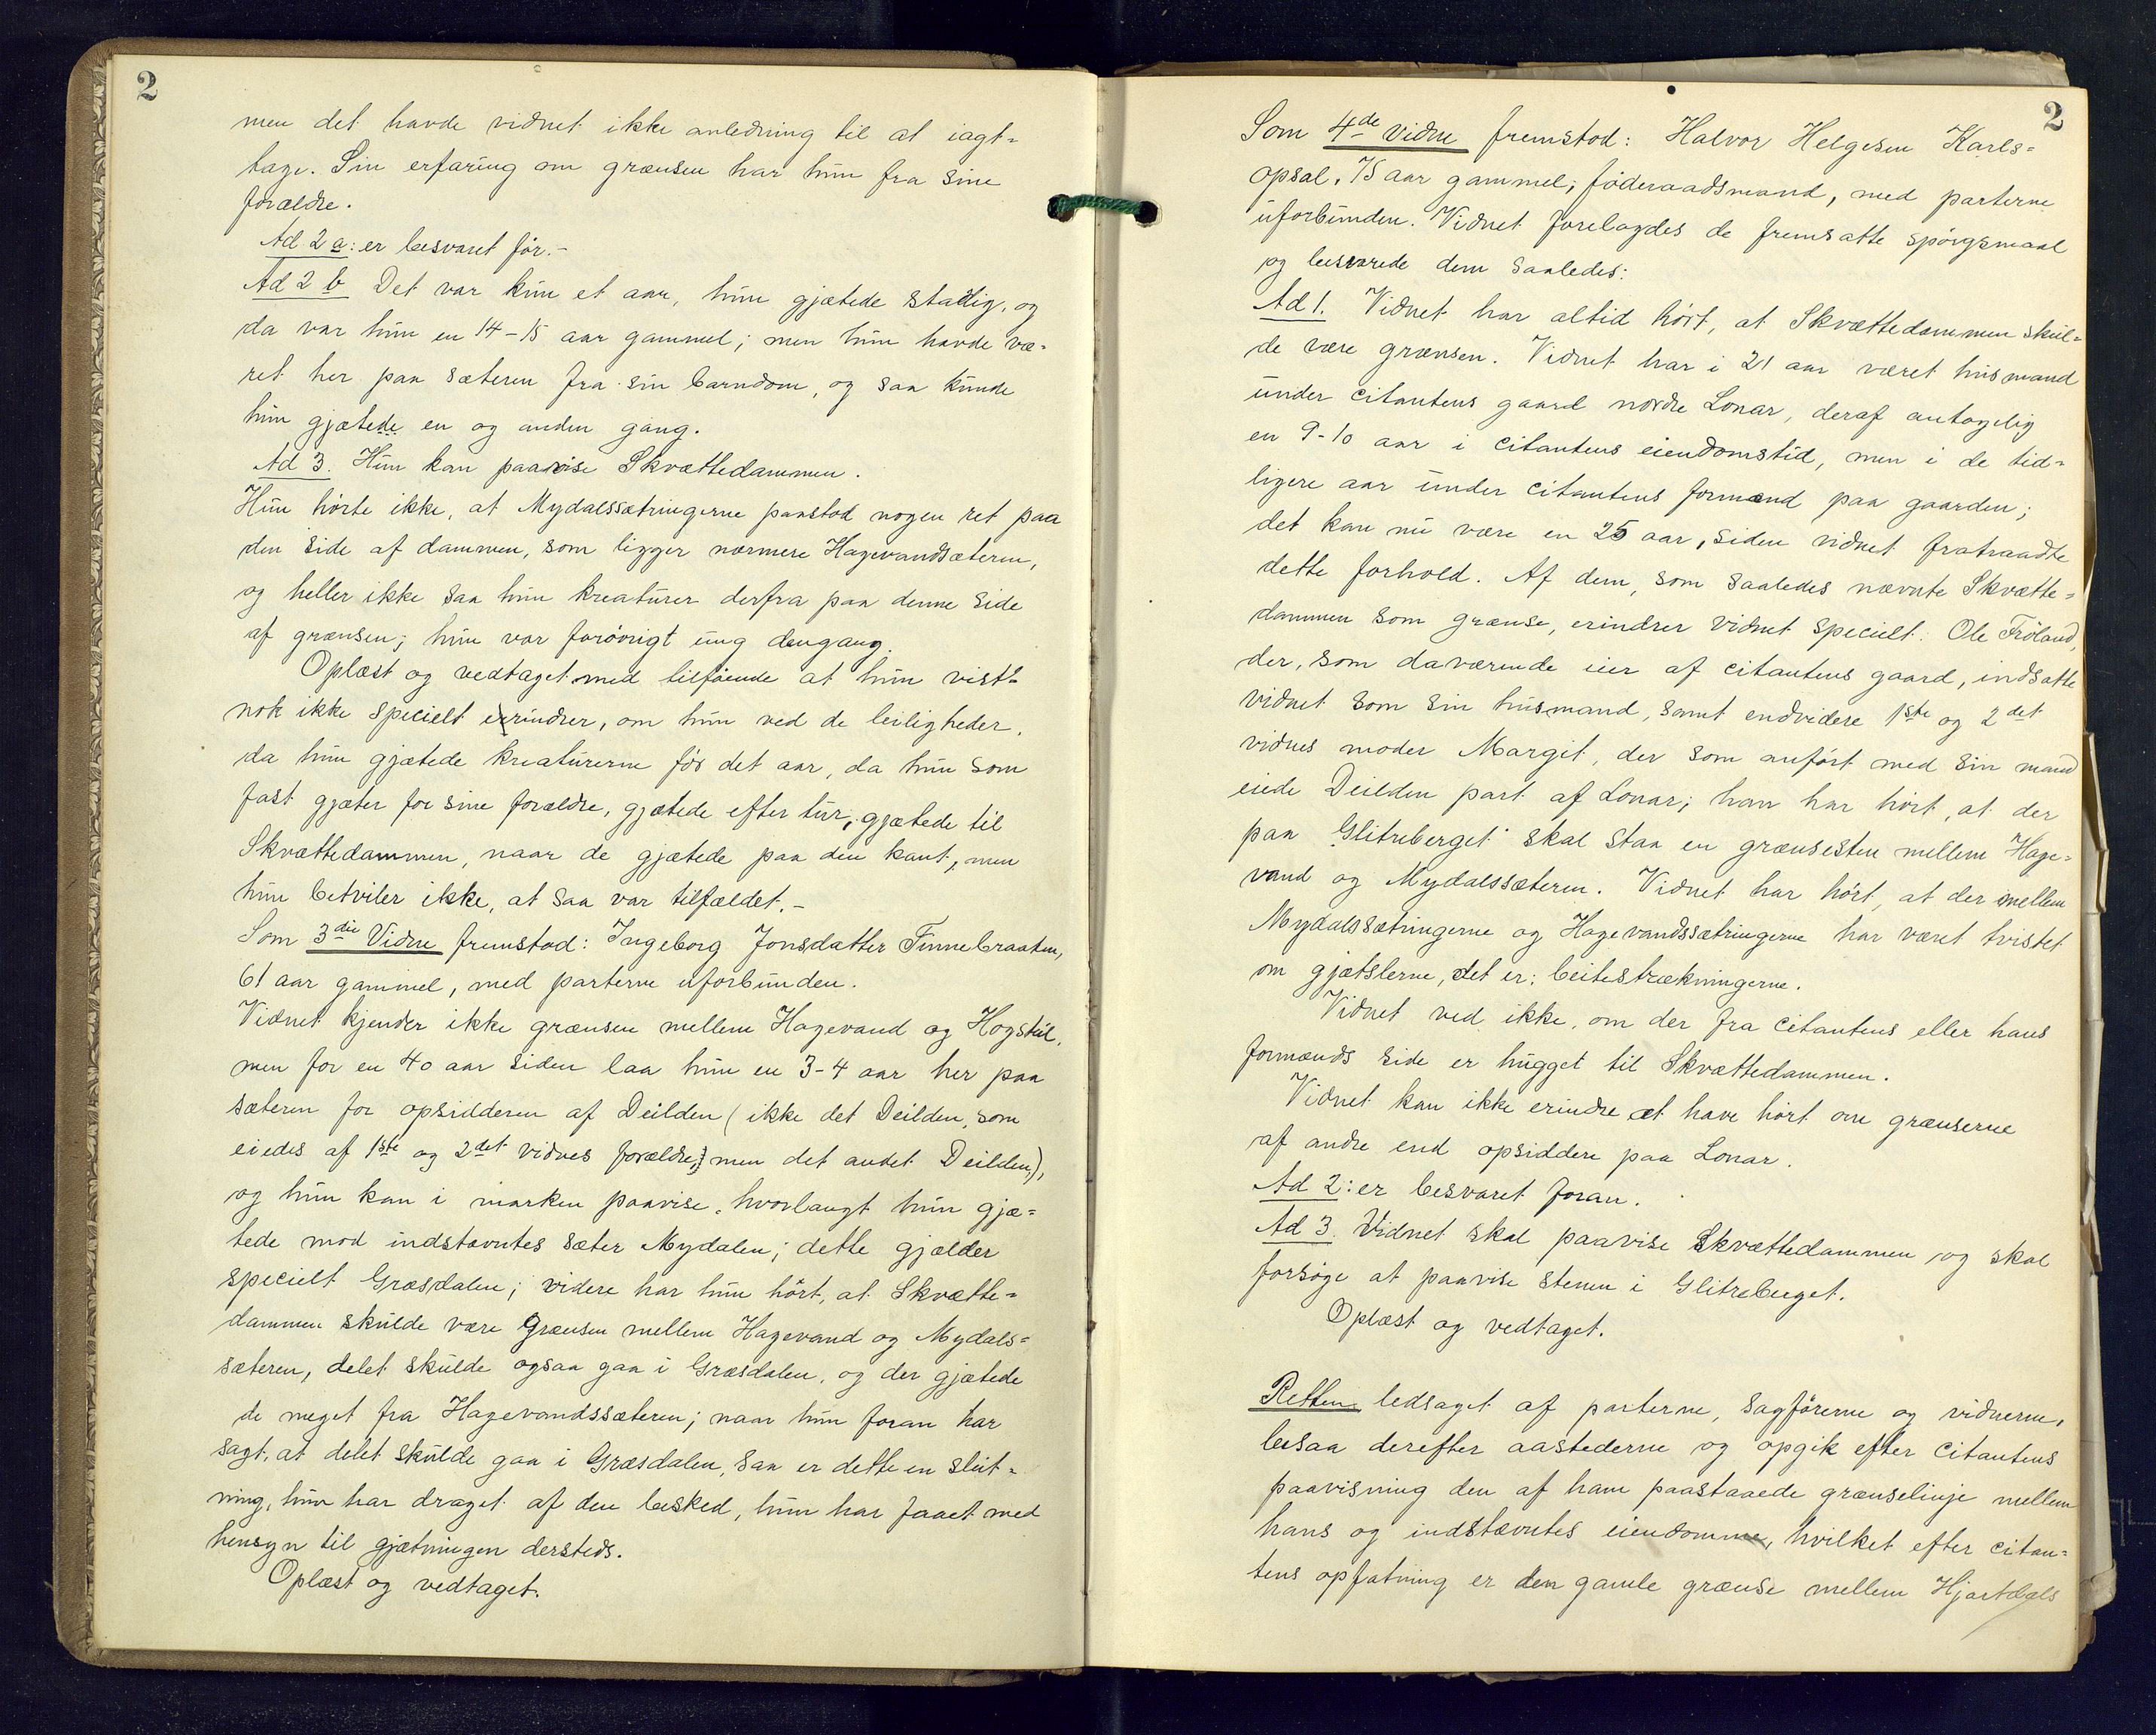 2
men det havde vidnet ikke anledning til at iagt-
tage. Sin erfaring om grænsen har hun fra sine
forældre.
Ad 2 a: er besvaret før.-
Ad 2 b Det var kun et aar, hun gjætede stadig, og
da var hun en 14-15 aar gammel; men hun havde væ-
ret her paa sæteren fra sin barndom, og saa kunde
hun gjætede en og anden gang.
Ad 3. Hun kan paavise Skvættedammen.
Hun hørte ikke, at Mydalssætringerne paastod nogen ret paa
den side af dammen, som ligger nærmere Hagevandsæteren,
og heller ikke saa hun kreaturer derfra paa denne side
af grænsen; hun var forøvrigt ung dengang.
Oplæst og vedtaget med tilføiende at hun vist-
nok ikke specielt erindrer, om hun ved de leiligheder,
da hun gjætede kreaturerne før det aar, da hun som
fast gjæter for sine forældre, gjætede efter tur, gjætede til
Skvættedammen, naar de gjætede paa den kant, men
hun betviler ikke, at saa var tilfældet.-
Som 3die Vidne fremstod: Ingeborg Jonsdatter Finnebraaten,
61 aar gammel, med parterne uforbunden.
Vidnet kjender ikke grænsen mellem Hagevand og Hogstul,
men for en 40 aar siden laa hun en 3-4 aar her paa
sæteren for opsidderen af Deilden (ikke det Deilden, som
eiedes af 1ste og 2det vidnes forældre, men det andet Deilden),
og hun kan i marken paavise, hvorlangt hun gjæ-
tede mod indstævntes sæter Mydalen; dette gjælder
specielt Græsdalen; videre har hun hørt, at Skvætte-
dammen skulde være Grænsen mellem Hagevand og Mydals-
sæteren, delet skulde ogsaa gaa i Græsdalen, og der gjætede
de meget fra Hagevandssæteren; naar hun foran har
sagt, at delet skulde gaa i Græsdalen, saa er dette en slut-
ning, hun har draget af den besked, hun har faaet med
hensyn til gjætningen dersteds.
Oplæst og vedtaget.
2
Som 4de vidne fremstod: Halvor Helgesen Karls-
opsal, 75 aar gammel, føderaadsmand, med parterne
uforbunden. Vidnet forelagdes de fremsatte spørgsmaal
og besvarede dem saaledes:
Ad 1. Vidnet har altid hørt, at Skvættedammen skul-
de være grænsen. Vidnet har i 21 aar været husmand
under citantens gaard nordre Lonar, deraf antagelig
en 9-10 aar i citantens eiendomstid, men i de tid-
ligere aar under citantens formænd paa gaarden;
det kan nu være en 25 aar, siden vidnet fratraadte
dette forhold. Af dem, som saaledes nævnte Skvætte-
dammen som grænse, erindrer vidnet specielt: Ole Frøland,
der, som daværende eier af citantens gaard, indsatte
vidnet som sin husmand, samt endvidere 1ste og 2det
vidnes moder Margit, der som anført med sin mand
eiede Deilden part af Lonar; han har hørt, at der
paa Glitreberget skal staa en grænsesten mellem Hage-
vand og Mydalssæteren. Vidnet har hørt, at der mellem
Mydalssætringerne og Hagevandssætringerne har været tvistet
om gjætslerne, det er: beitestrækningerne.
Vidnet ved ikke, om der fra citantens eller hans
formænds side er hugget til Skvættedammen.
Vidnet kan ikke erindre at have hørt om grænserne
af andre end opsiddere paa Lonar.
Ad 2: er besvaret foran.
Ad 3. Vidnet skal paavise Skvættedammen og skal
forsøge at paavise stenen i Glitreberget.
Oplæst og vedtaget.
Retten ledsaget af parterne, sagførerne og vidnerne,
besaa derefter aastederne og opgik efter citantens
paavisning den af ham paastaaede grænselinje mellem
hans og indstævntes eiendomme, hvilket efter citan-
tens opfatning er den gamle grænse mellem Hjartdals